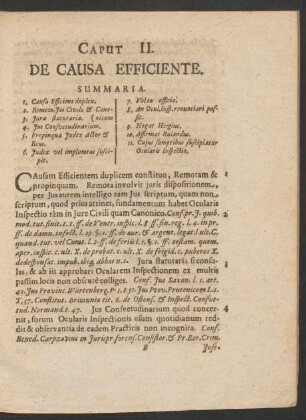 CAPUT II.
DE CAUSA EFFICIENTE.
SUMMARIA.
1. Causa Efficiens duplex.
2. Remota. Jus Civile & Cano-
3. Jura statutaria. (nicum
4. Jus Consvetudinarium.
5. Propinqua Judex Actor &
Reus.
6. Judex vel imploratus susci-
pit.
7. Vel ex officio.
8. An Ocul. Insp. renuntiari pos-
sit.
9. Negat Hirgius.
10. Affirmat Rulandus.
11. Cujus sumptibus suscipiatur
Ocularis Inspectio.
CAusam Efficientem duplicem constituo, Remotam & 1
propinquam. Remota involvit juris dispositionem, 2
per Jus autem intelligo tam Jus scriptum, quam non
scriptum, quod prius attinet, fundamentum habet Ocularis
Inspectio tàm in Jure Civili quam Canonico. Conf. pr. J. quib.
mod. tut. finit. t. t. ff. de Ventr. inspic. l. 8. ff. fin. reg. l. 4. in pr.
ff. de damn. infect. l. 20. §. ff. de aur. & argent. legat. l. ult. C.
quand. tut. vel Curat. l. 2. ff. de feriis l. 3. §. 1. ff. eod. am. quem.
aper. inspic. c. ult. X. de probat. c. ult. X. de frigid. c. pubere X.
de desponsat. impub. ibiq. abbas n. 1. Jura statutaria si consu- 3
las, & ab iis approbari Ocularem Inspectionem ex multis
passim locis non obscurè colliges. Conf. Jus Saxon. l. 1. art.
41. Jus Provinc. Würtenberg. P. 1. t. 51. Jus Prov. Prutenicum L. 2.
T. 37. Constitut. Britannic. tit. 6. de Ostens. & Inspect. Consvet-
nd. Normand. t. 47. Jus Consvetudinarium quod concer- 4
nit, forum Ocularis Inspectionis usum quotidianum red-
dit & observantia de eadem Practicis non incognita. Conf.
Bened. Carpzovius in Jurispr. forens. Consistor. & Pr. Rer. Crim.
B Jose-